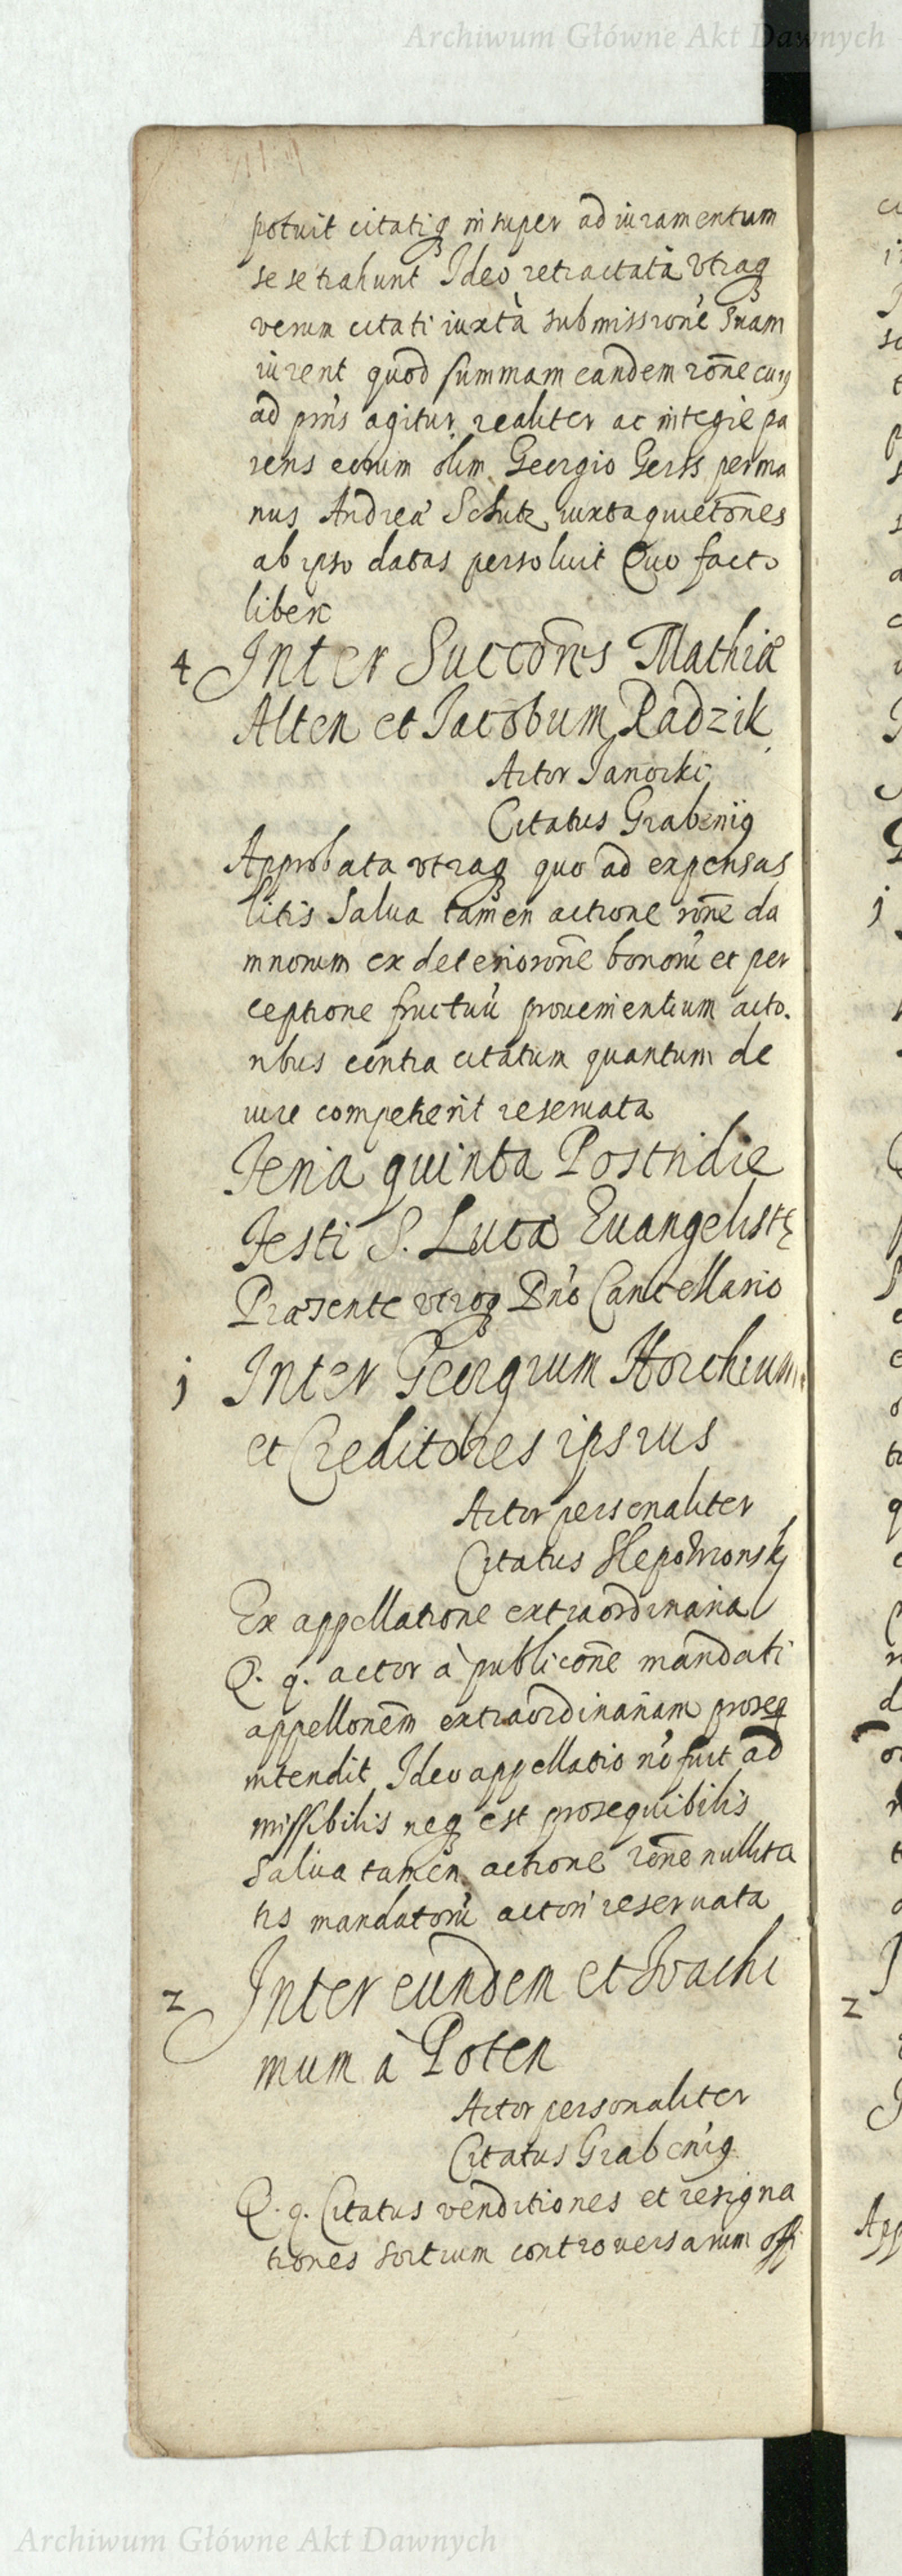 Archiwum Główne Akt Dawnych
potuit citatiq insuper ad iuramentum
sese trahunt Ideo retractatâ vtraq
verum citati iuxtà submissione suam
iurent quod summam eandem rōne cuius
ad pns agitur realiter ac integre pa
rens eorum olim Georgio Gerss per ma
nus Andrea Schutz iuxta quietōnes
ab ipso datas persoluit Quo facto
liberi
4 Inter Succōres Mathiæ
Alten et Iacobum Radzik
Actor Janocki
Citatus Grabeniq
Approbata vtraq quo ad expensas
litis Salua tamen actione rōne da
mnorum ex deteriorōne bonorū et per
ceptione fructuū prouenientium acto
ribus contra citatum quantum de
iure competierit reseruata
Feria quinta Postridie
Festi S. Lucæ Euangelistę
Præsente vtroq Dn̄o Cancellario
j Inter Georgium Horchium
et Creditores ipsius
Actor personaliter
Citatus Slepowronskj
Ex appellatione extraordinaria
Q. q. actor à publicōne mandati
appellonēm extraordinariam proseq
intendit Ideo appellatio nō fuit ad
missibilis neq est prosequibilis
Salua tamen actione rōne nullita
tis mandatorū actori reseruata
2 Inter eundem et Ioachi
mum à Poten
Actor personaliter
Citatus Grabeniq
Q. q. Citatus venditiones et resigna
tiones sortium controuersarum offi
2
Archiwum Główne Akt Dawnych